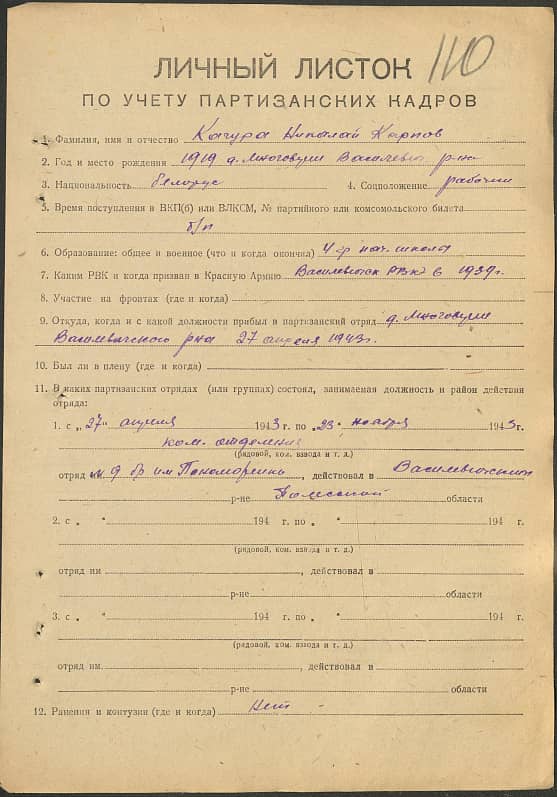 110
ЛИЧНЫЙ ЛИСТОК
ПО УЧЕТУ ПАРТИЗАНСКИХ КАДРОВ
1. Фамилия, имя и отчество Качура Николай Карпов
2. Год и место рождения 1919 д. Многовуши Васичевич р-на
3. Национальность белорус 4. Соцположение рабочий
5. Время поступления в ВКП(б) или ВЛКСМ, № партийного или комсомольского билета
б/п
6. Образование: общее и военное (что и когда окончил) 4 гр нач. школа
7. Каким РВК и когда призван в Красную Армию РВК в 1939 г.
8. Участие на фронтах (где и когда)
9. Откуда, когда и с какой должности прибыл в партизанский отряд д.
Василевичского р-на 27 апреля 1943 г.
10. Был ли в плену (где и когда)
11. В каких партизанских отрядах (или группах) состоял, занимаемая должность и район действия
отряда:
1. с „27" апреля 1943 г. по „23" ноября 1943 г.
ком. отделения
(рядовой, ком. взвода и т. д.)
отряд им. 9 бр им Пономаренко, действовал в
р-не Полесской области
2. с „ " 194 г. по „ " 194 г.
(рядовой, ком. взвода и т. д.)
отряд им , действовал в
р-не области
3. с „ " 194 г. по „ " 194 г.
(рядовой, ком. взвода и т. д.)
отряд им. , действовал в
р-не области
12. Ранения и контузии (где и когда) Нет -